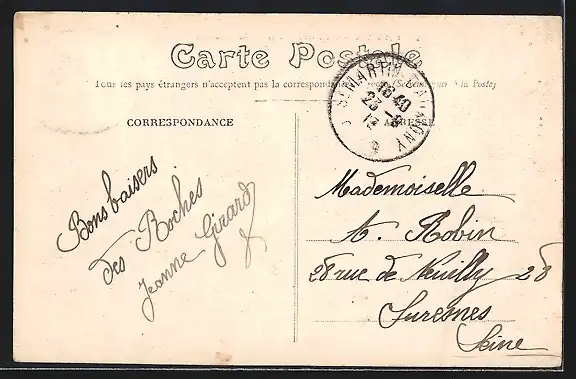 Carte Postale
Tous les pays étrangers n'acceptent pas la correspondance (Se à la Poste)
CORRESPONDANCE
ADRESSE
ST MARTIN
16 40
23 -8
12
Bons baisers
des Roches
Jeanne Girard
Mademoiselle
A. Robin
28 rue de Neuilly 28
Suresnes
Seine